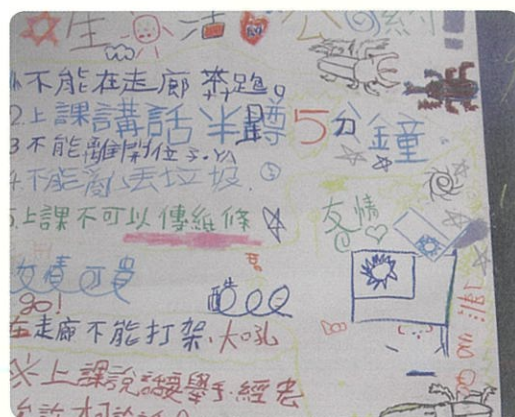 生活公約
1.不能在走廊奔跑。
2.上課講話半蹲5分鐘
3.不能離開位子.YA
4.不能亂丟垃圾.
5.上課不可以傳紙條
友情
友情可貴
go!
酷
在走廊不能打架、大吼
※上課說話要舉手.經老